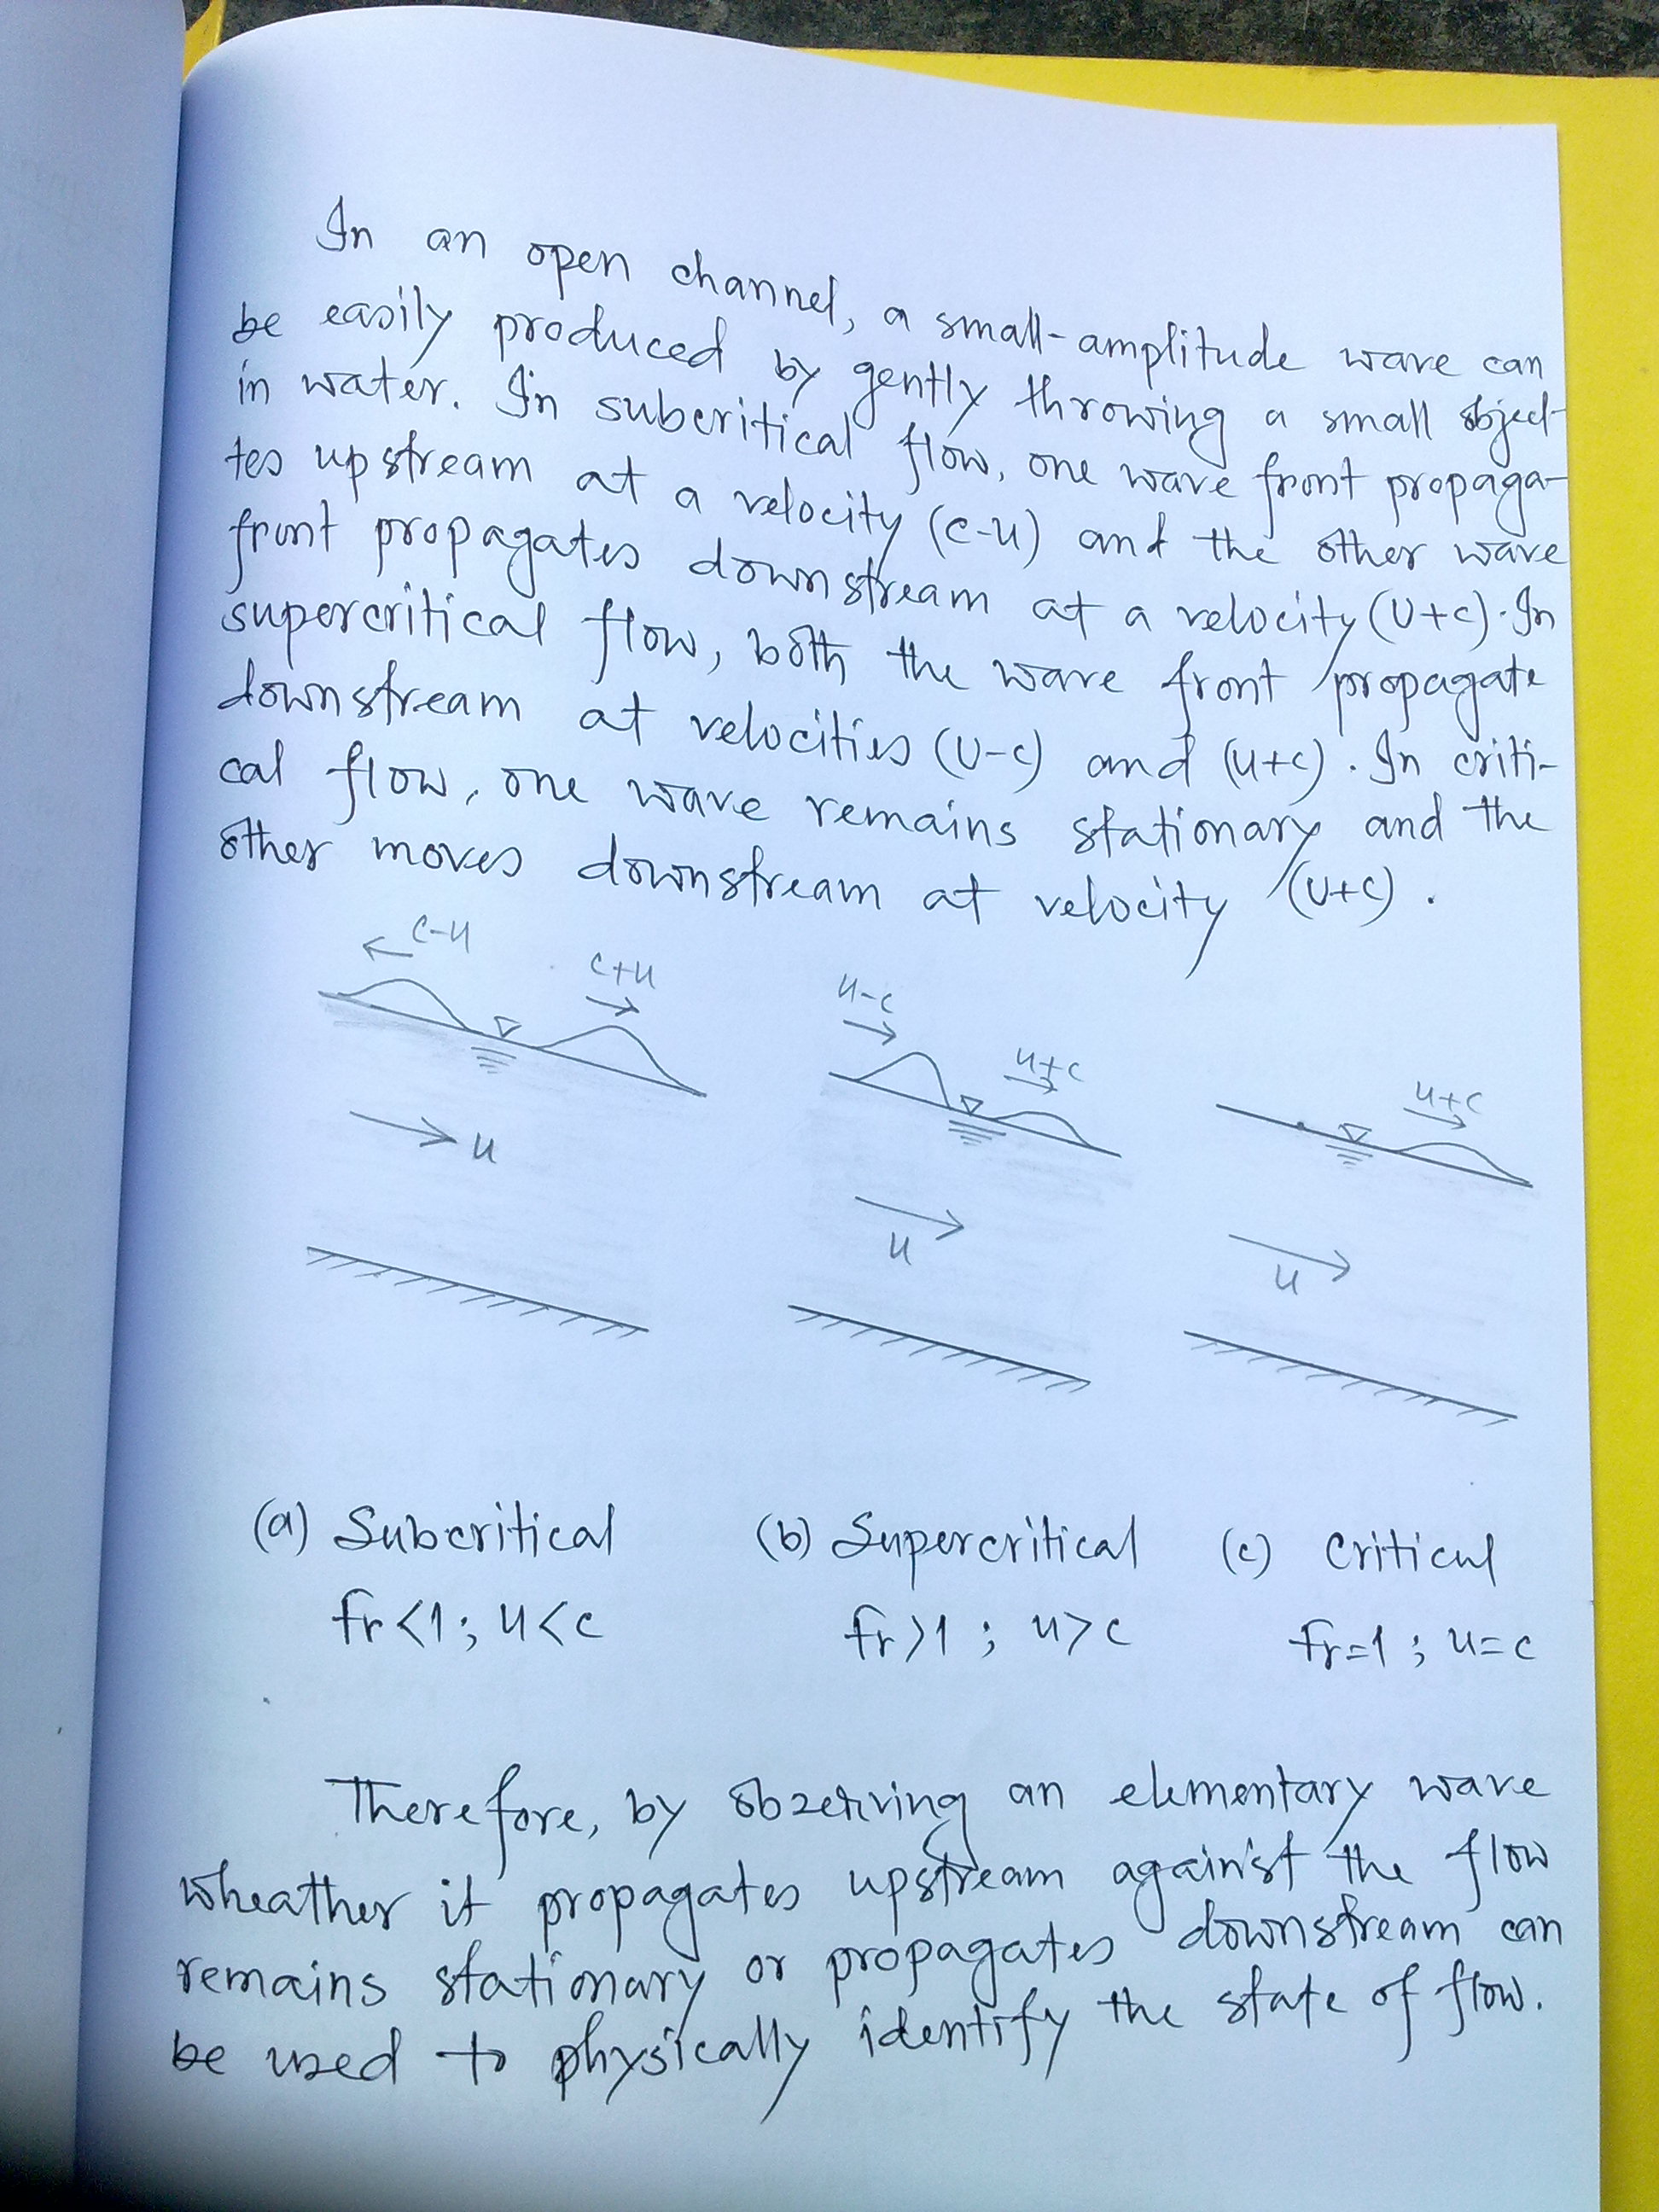 In an open channel, a small-amplitude wave can
be easily produced by gently throwing a small object
in water. In subcritical flow, one wave front propaga-
tes upstream at a velocity (c-u) and the other wave
front propagates downstream at a velocity (U+c). In
supercritical flow, both the wave front propagate
downstream at velocities (U-c) and (u+c). In criti-
cal flow, one wave remains stationary and the
other moves downstream at velocity (U+c).
c-u
c+u
u
u-c
u+c
u
u+c
u
(a) Subcritical
fr<1; u<c
(b) Supercritical
fr>1; u>c
(c) Critical
fr=1; u=c
Therefore, by observing an elementary wave
wheather it propagates upstream against the flow
remains stationary or propagates downstream can
be used to physically identify the state of flow.